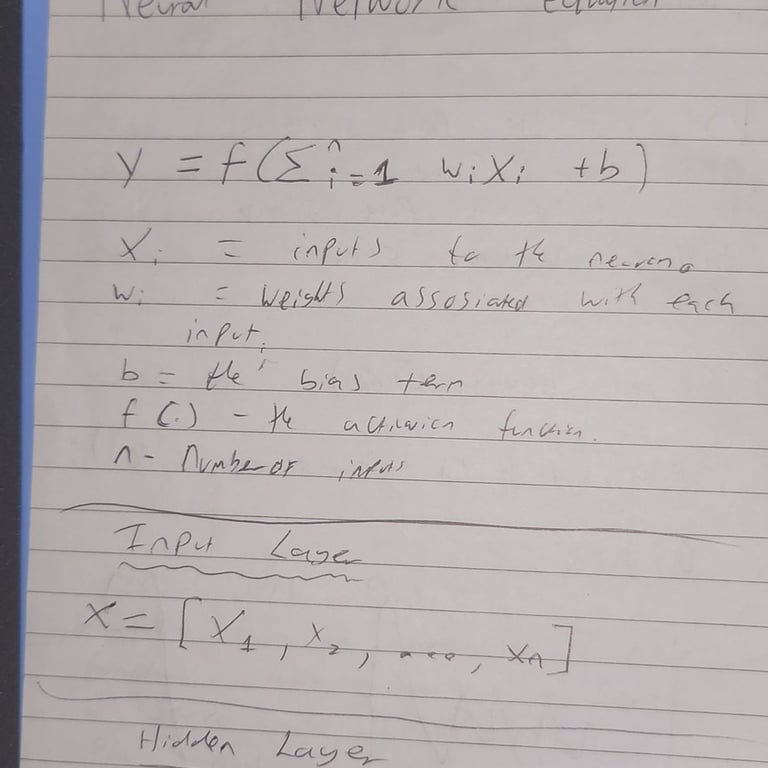 Neural Network Equation
y = f(Σⁿᵢ₌1 wᵢXᵢ +b)
Xᵢ = inputs to the neurone
wᵢ = weights assosiated with each
input.
b = the bias term
f (.) - the activation function.
n - number of inputs
Input Layer
X = [X₁, X₂, ..., Xn]
Hidden Layer